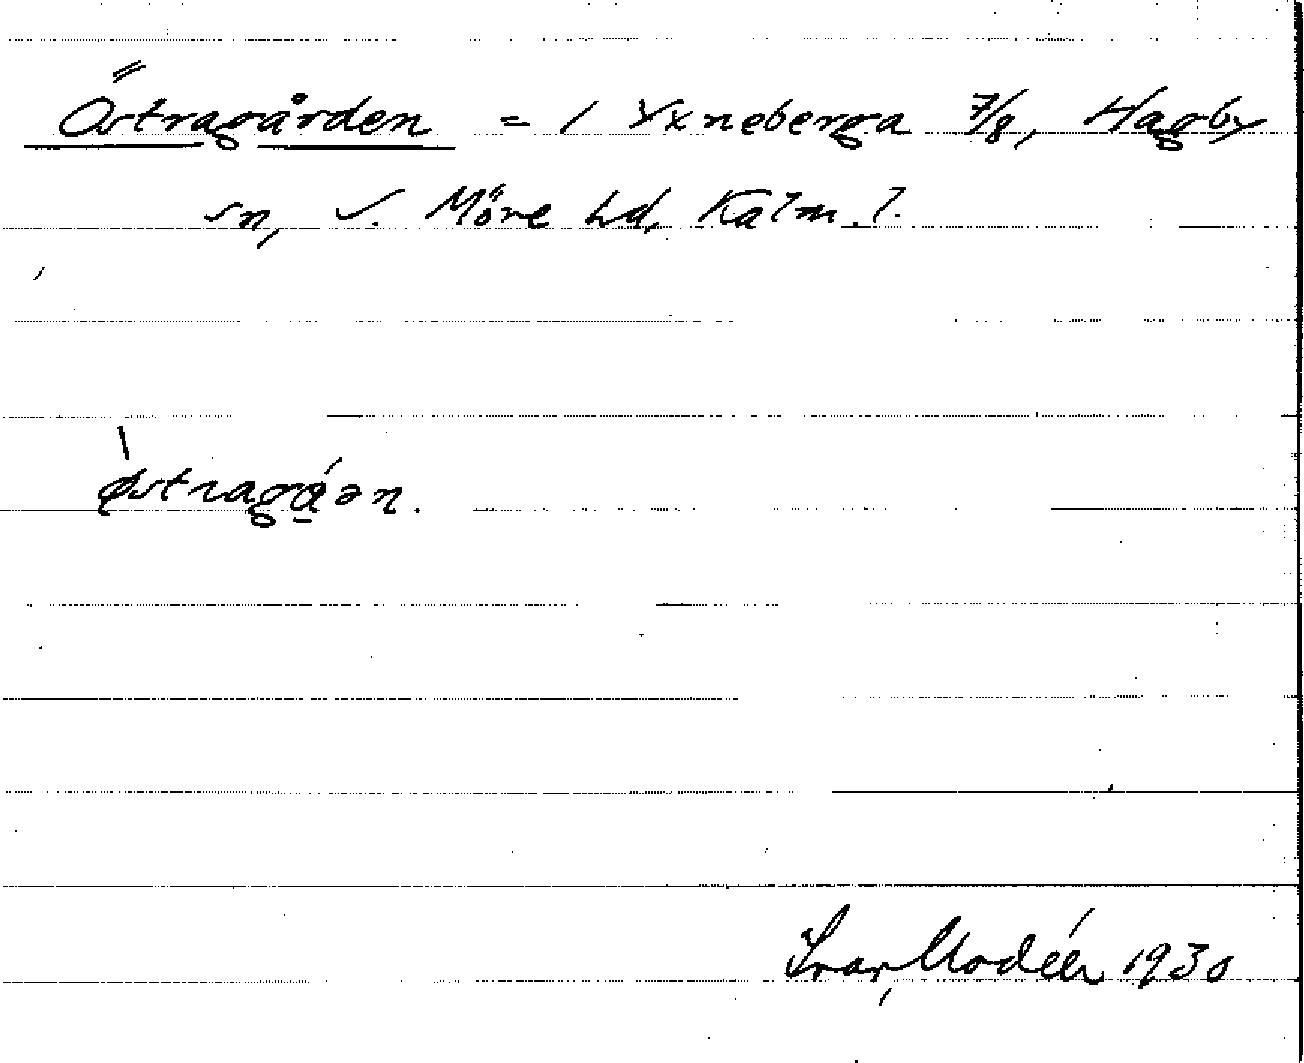 Östragården = 1 Yxneberga 7/8, Hagby
sn, S. Möre hd, Kalm. l.
østragá̱ən.
Ivar Modéer 1930